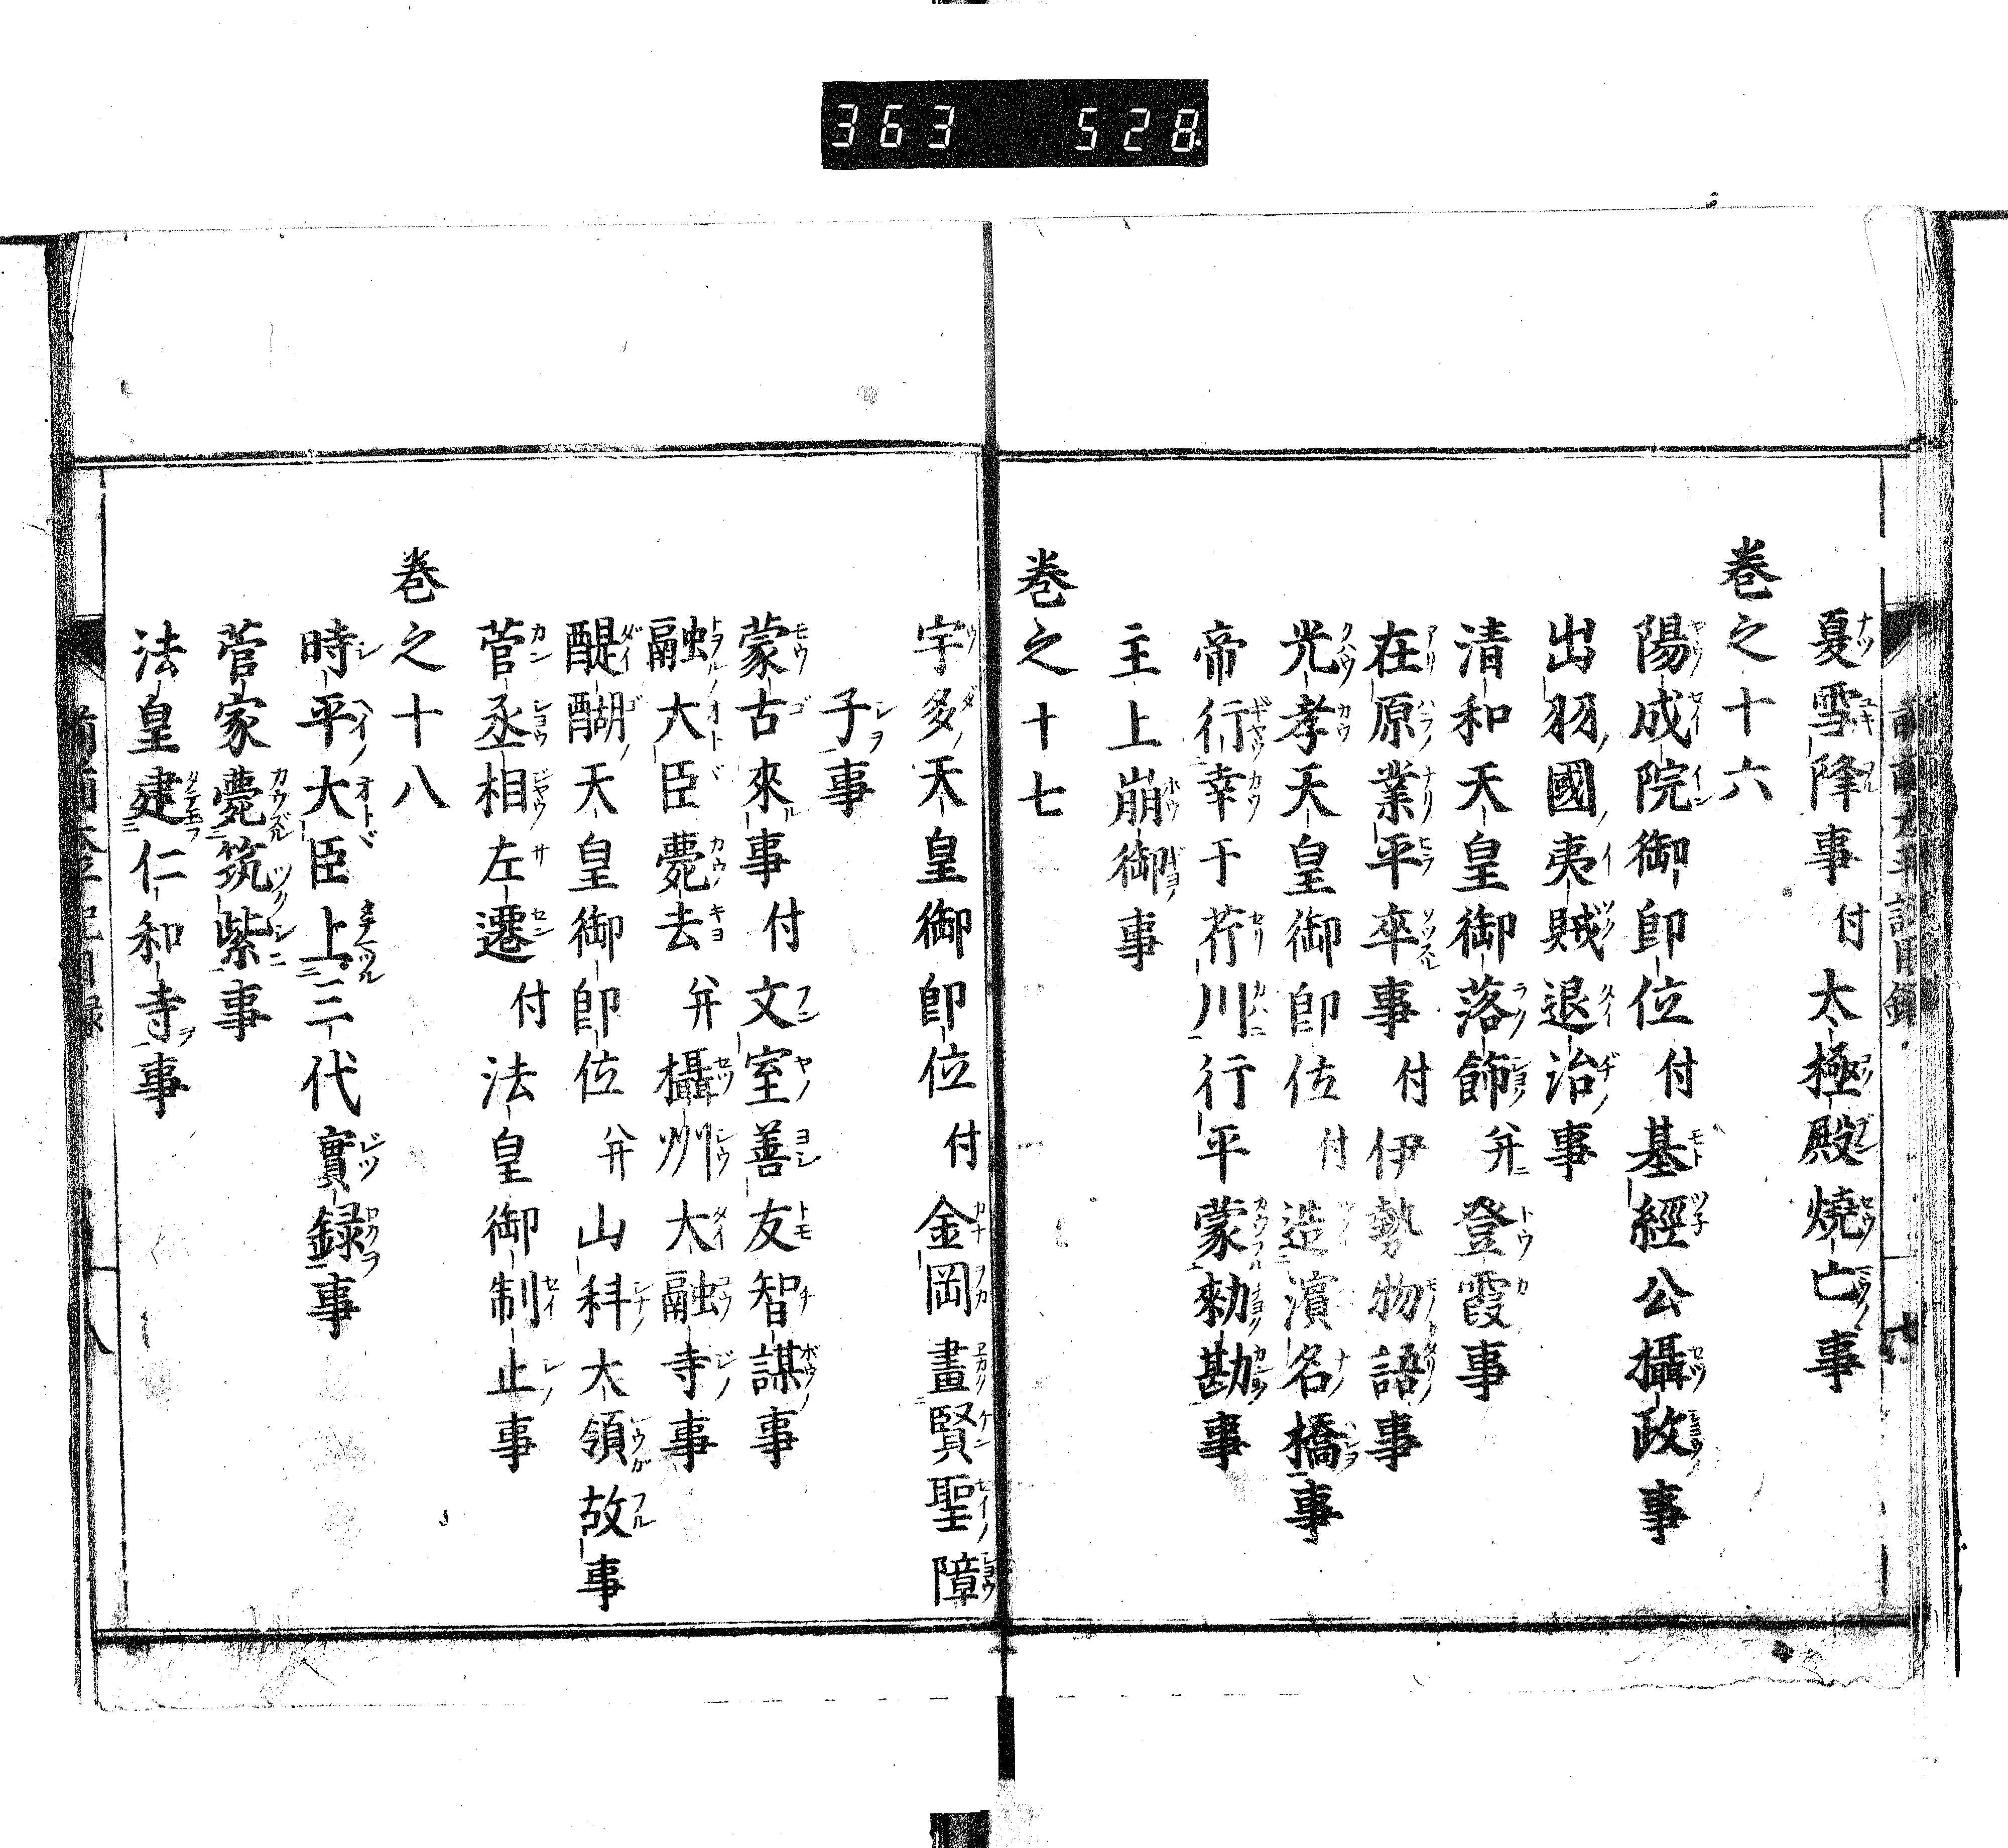 363 528
夏雪降事 付 太極殿燒亡事
巻之十六
陽成院御即位 付 基經公攝政事
出羽國夷賊退治事
清和天皇御落飾 并 登霞事
在原業平卒事 付 伊勢物語事
光孝天皇御即位 付 造濱名橋事
帝行幸于芹川行平蒙勅勘事
主上崩御事
巻之十七
宇多天皇御即位 付 金岡畫賢聖障
子事
蒙古來事 付 文室善友智謀事
融大臣薨去 并 攝州大融寺事
醍醐天皇御即位 并 山科大領故事
菅丞相左遷 付 法皇御制止事
巻之十八
時平大臣上三代實録事
菅家薨筑紫事
法皇建仁和寺事